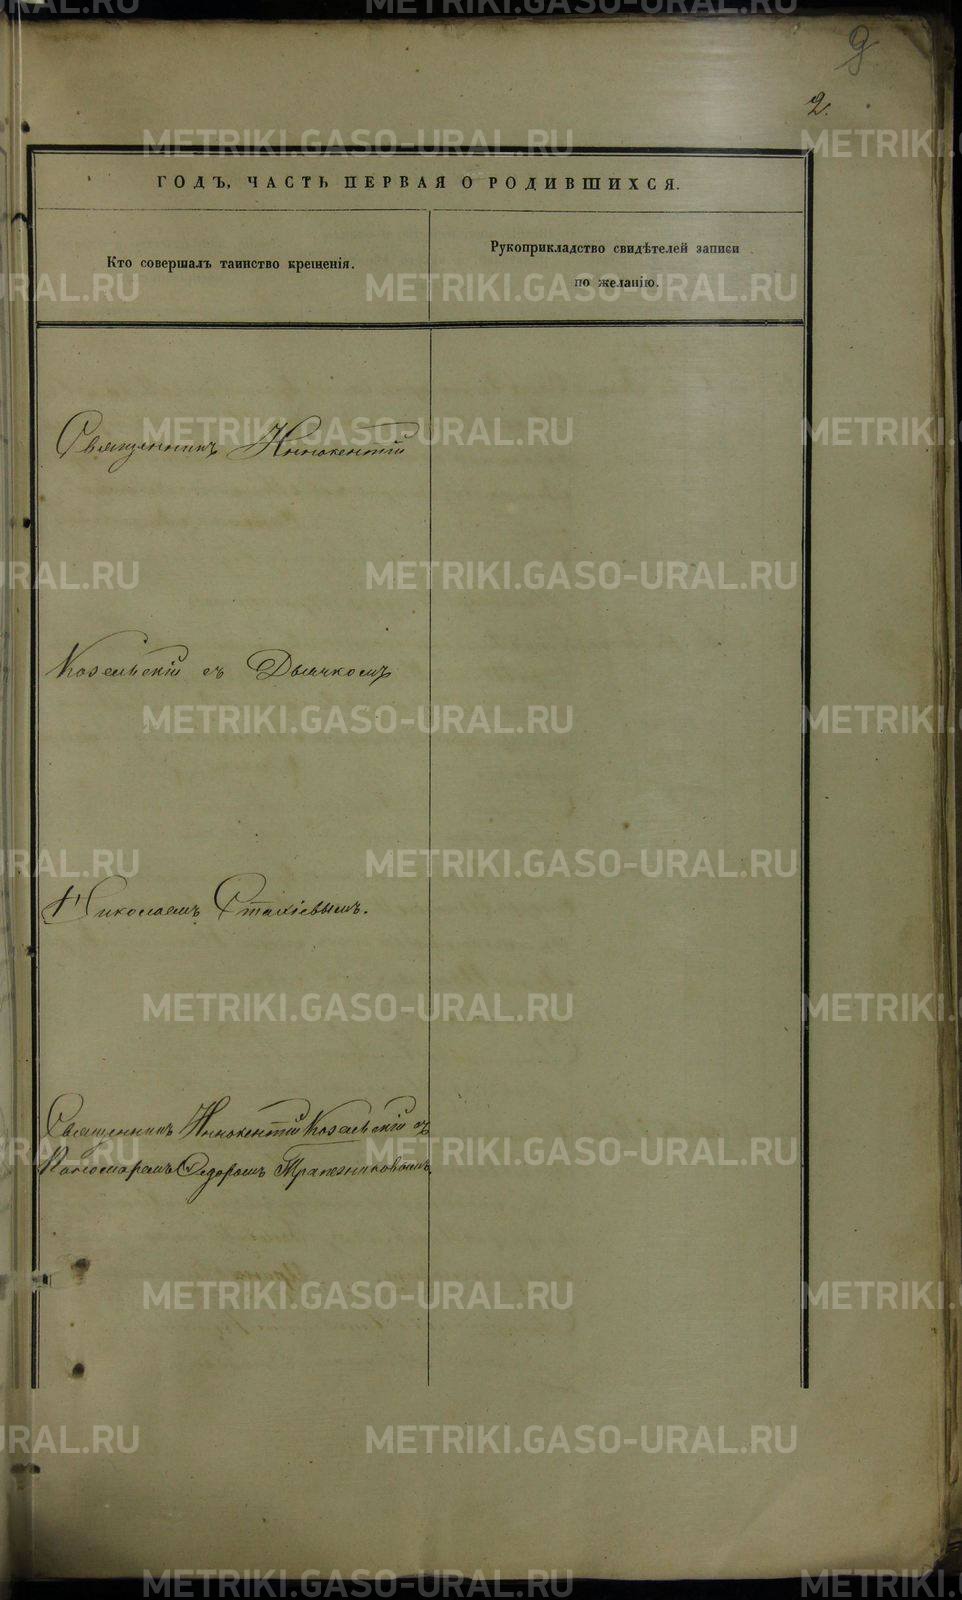 9
2.
ГОДЪ, ЧАСТЬ ПЕРВАЯ О РОДИВШИХСЯ.
Кто совершалъ таинство крещенія.
Рукоприкладство свидѣтелей записи
по желанію.
Священникъ Иннокентій
Козельскій съ Дьячкомъ
Николаемъ Стахіевымъ.
Священникъ Иннокентій Козельскій съ
Пономаремъ Ѳедоромъ Трапезниковымъ.
METRIKI.GASO-URAL.RU